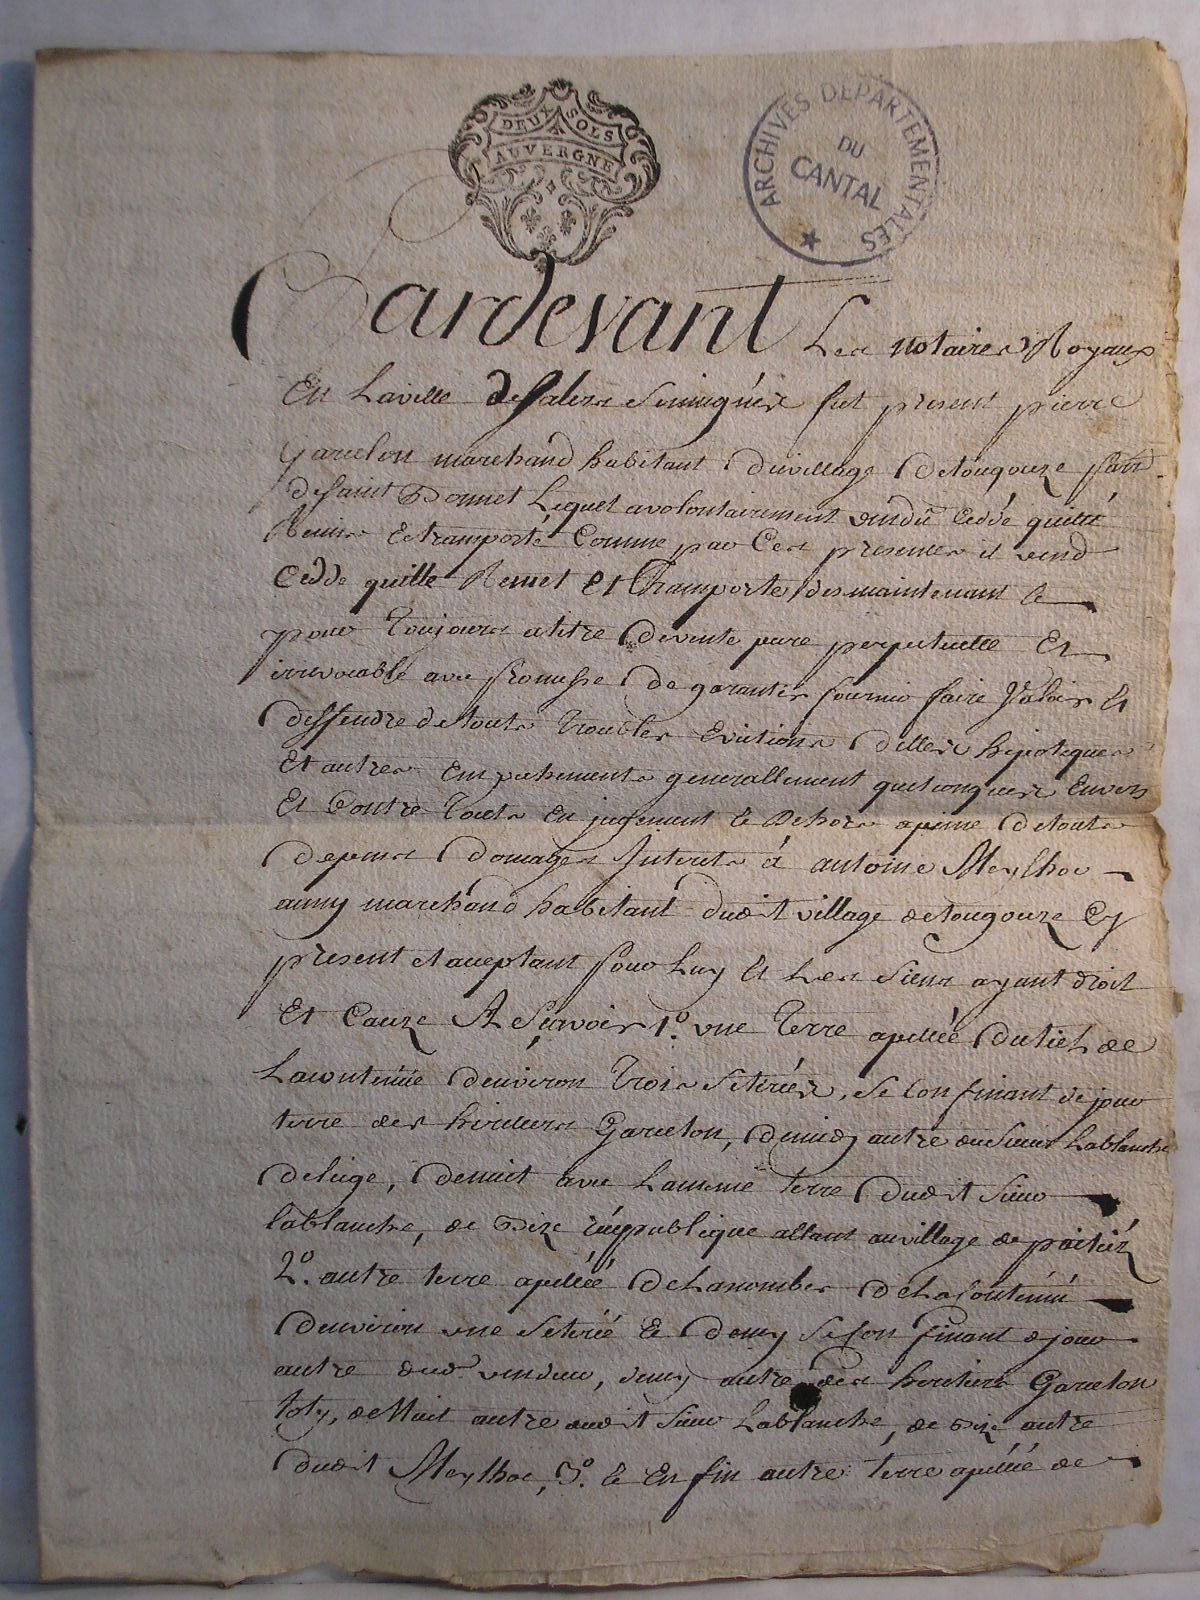 DEUX SOLS
AUVERGNE
ARCHIVES DEPARTEMENTALES
DU
CANTAL
Pardevant Les notaires Royaux
En Laville de Salers Soussignés fut present pierre
Garcelon marchand habitant du village de tougouze parr
de Saint Bonnet Lequel a volontairement vendu Cedé quitté
Remis et transporté Comme par Ces presentes il vend
Cedde quitte Remet et Transporte des maintenant et
pour Toujours a titre de vente pure perpetuelle Et
irrevocable avec promesse de garantir fournir faire Valoir et
deffendre de touts Troubles Evictions dettes hipoteques
Et autres Empechements generallement quelconques Envers
Et Contre Touts En jugement et Dehors a peine de touts
depens domages Interets á antoine Meylhoc
aussy marchand habitant dudit village de tougouze Cy
present et aceptant pour Luy et Les siens ayant droit
Et Cauze A Scavoir 1º. une Terre apellée du
Lacontenüe denviron Trois Seterées, Se Confinant de jour
terre des heritiers Garcelon, de midy autre du Sieur Lablanche
de nuit avec Lameme terre dudit Sieur
lablanche, de Bize publique allant au village de
2º. autre terre apellée de Lacontenüe
denviron une Seterée et demy Se Confinant de jour
autre dud. vendeur, de midy autre des heritiers Garcelon
de Nuit autre dudit Sieur Lablanche, de Bize autre
dudit Meylhoc, 3º. et En fin autre terre apellée de